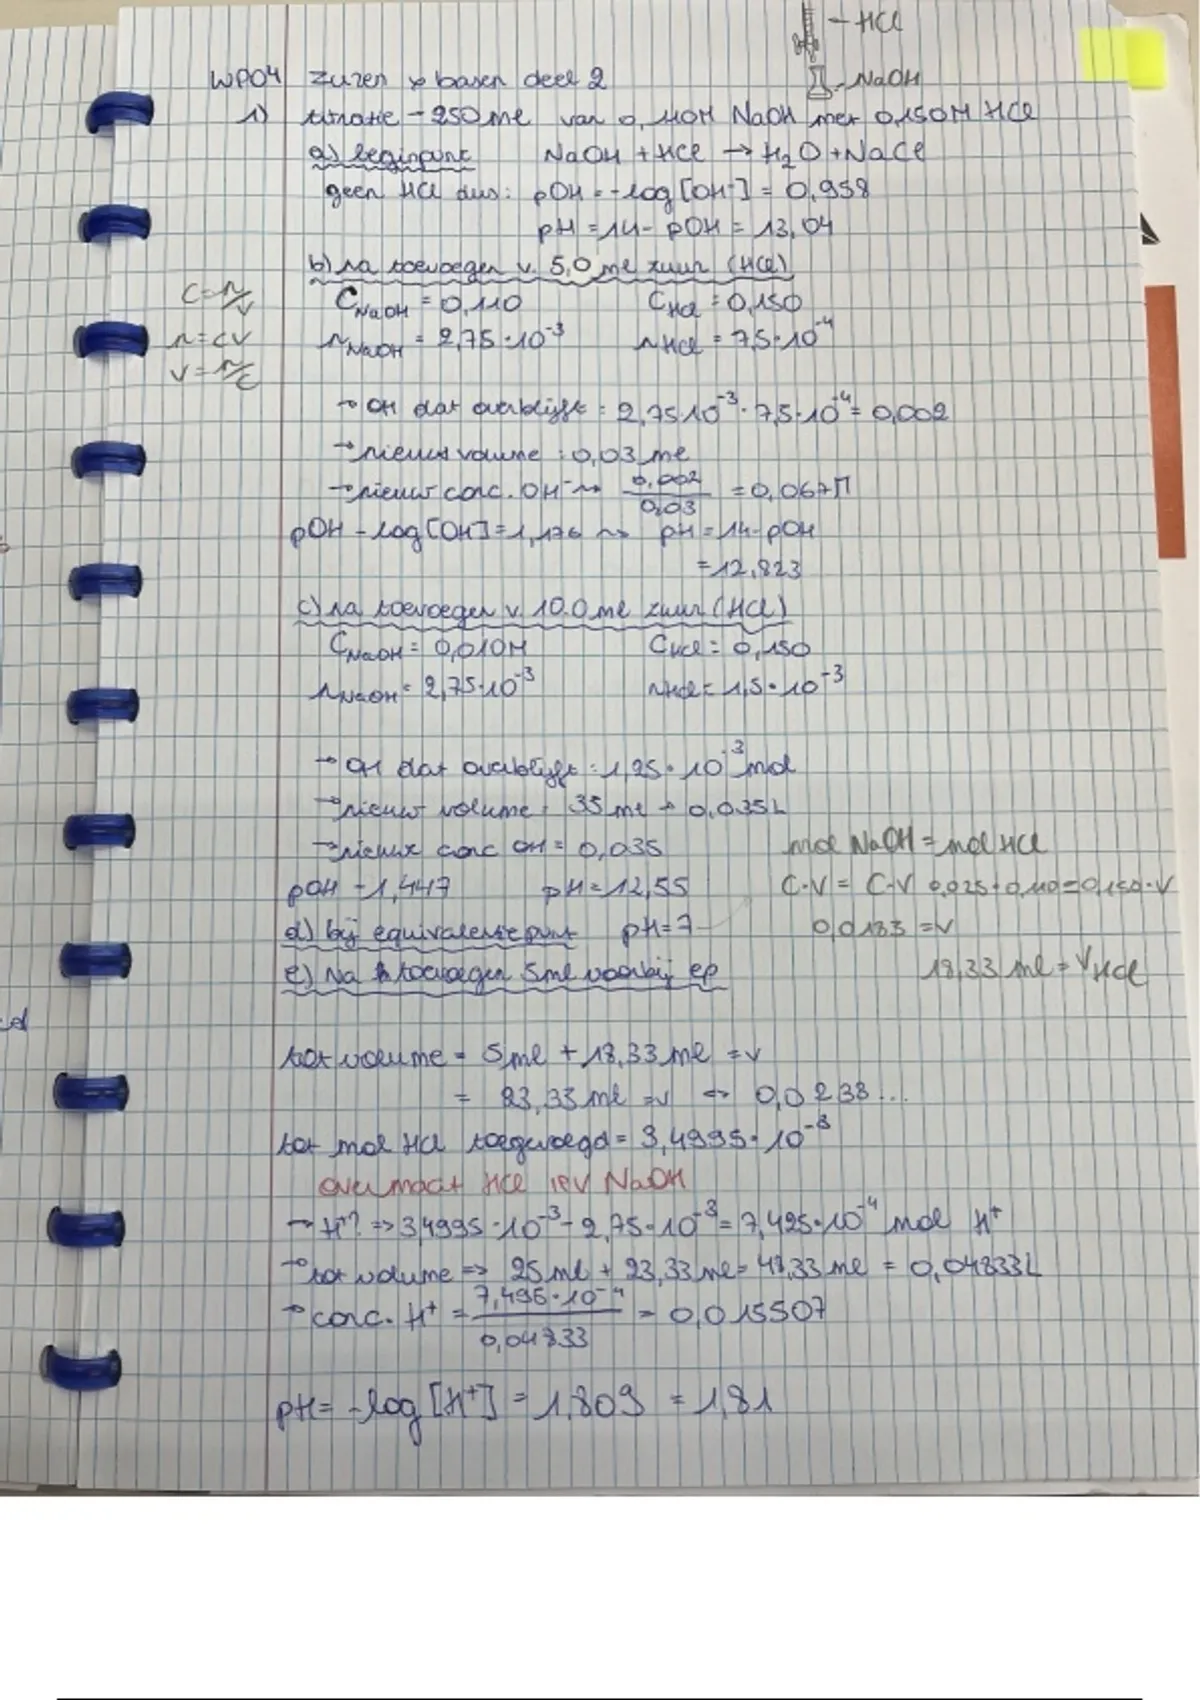 HCl
NaOH
WPO4 zuren & basen deel 2
1) titratie - 250ml van 0,110M NaOH met 0,150M HCl
a) beginpunt NaOH + HCl → H₂O + NaCl
geen HCl dus: pOH = -log [OH⁻] = 0,958
pH = 14 - pOH = 13,04
b) na toevoegen v. 5,0 ml zuur (HCl)
C=n/v C_NaOH = 0,110 C_HCl = 0,150
n=cv n_NaOH = 2,75·10⁻³ n_HCl = 7,5·10⁻⁴
v=n/c
→ OH dat overblijft = 2,75·10⁻³ - 7,5·10⁻⁴ = 0,002
→ nieuws volume : 0,03 ml
→ nieuw conc. OH⁻ ⇝ 0,002/0,03 = 0,067M
pOH - log [OH] = 1,176 ⇝ pH = 14 - pOH
= 12,823
c) na toevoegen v. 10.0 ml zuur (HCl)
C_NaOH = 0,010M C_HCl = 0,150
n_NaOH = 2,75·10⁻³ n_HCl = 1,5·10⁻³
→ OH dat overblijft : 1,25·10⁻³ mol
→ nieuw volume = 35 ml → 0,035L
→ nieuw conc OH = 0,035 mol NaOH = mol HCl
pOH - 1,447 pH = 12,55 C·V = C·V 0,025·0,110 = 0,150·V
d) bij equivalentiepunt pH = 7 0,0183 = V
e) Na toevoegen 5ml voorbij ep 18,33 ml = V HCl
tot volume = 5ml + 18,33 ml = v
= 23,33 ml = v ⇔ 0,0233...
tot mol HCl toegevoegd = 3,4995·10⁻³
overmaat HCl tev NaOH
→ H⁺? => 3,4995·10⁻³ - 2,75·10⁻³ = 7,495·10⁻⁴ mol H⁺
→ tot volume => 25 ml + 23,33 ml = 48,33 ml = 0,04833L
→ conc. H⁺ = 7,495·10⁻⁴/0,04833 = 0,015507
pH = -log [H⁺] = 1,809 = 1,81